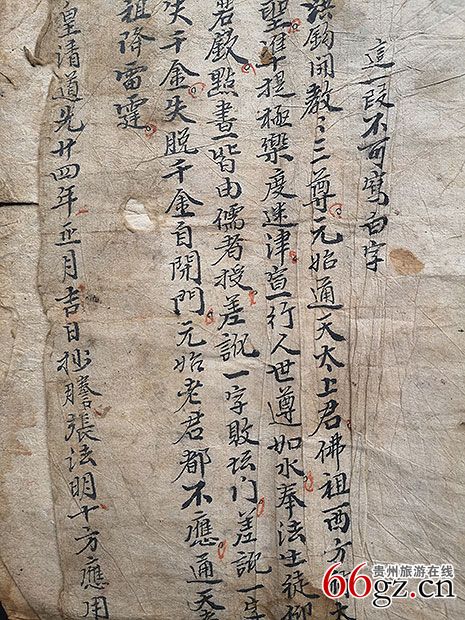 這一段不可寫白字
洪鈞開教〻三尊元始通天太上君佛祖西方大
聖準提極樂度迷津宣行人世尊如水奉法生徒仰
若欽點畫皆由儒者授差訛一字敗坛门差訛一字
失千金失脫千金自開門元始老君都不應通天老
祖降雷霆
皇清道光廿四年正月吉日抄謄張法明十方應用
貴州旅游在线
66gz.cn